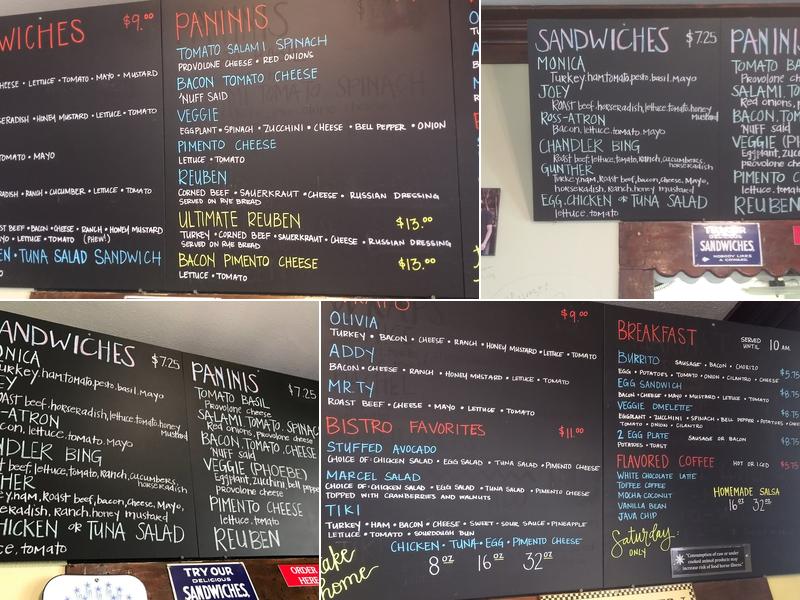 WICHES $9.00
CHEESE • LETTUCE • TOMATO • MAYO • MUSTARD
HONEY MUSTARD • LETTUCE • TOMATO
TOMATO • MAYO
• RANCH • CUCUMBER • LETTUCE • TOMATO
BEEF • BACON • CHEESE • RANCH • HONEY MUSTARD
• LETTUCE • TOMATO (PHEW!)
• TUNA SALAD SANDWICH
PANINIS
TOMATO SALAMI SPINACH
PROVOLONE CHEESE • RED ONIONS
BACON TOMATO CHEESE
'NUFF SAID
VEGGIE
EGGPLANT • SPINACH • ZUCCHINI • CHEESE • BELL PEPPER • ONION
PIMENTO CHEESE
LETTUCE • TOMATO
REUBEN
CORNED BEEF • SAUERKRAUT • CHEESE • RUSSIAN DRESSING
SERVED ON RYE BREAD
ULTIMATE REUBEN $13.00
TURKEY • CORNED BEEF • SAUERKRAUT • CHEESE • RUSSIAN DRESSING
SERVED ON RYE BREAD
BACON PIMENTO CHEESE $13.00
LETTUCE • TOMATO
SANDWICHES $7.25
MONICA
Turkey, ham, tomato, pesto, basil, mayo
JOEY
Roast beef, horseradish, lettuce, tomato, honey
mustard
ROSS-ATRON
Bacon, lettuce, tomato, mayo
CHANDLER BING
Roast beef, lettuce, tomato, ranch, cucumbers,
horseradish
GUNTHER
Turkey, ham, Roast beef, bacon, cheese, Mayo,
horseradish, Ranch, honey mustard
EGG, CHICKEN OR TUNA SALAD
lettuce, tomato
PANINIS
TOMATO BA
Provolone ch
SALAMI, TO
Red onions, p
BACON, TOM
'Nuff said
VEGGIE (PH
Eggplant, zucc
provolone che
PIMENTO C
lettuce, tomat
REUBEN
TRY OUR
DELICIOUS
SANDWICHES.
NOBODY LIKES
A COWARD.
ANDWICHES $7.25
ONICA
Turkey, ham, tomato, pesto, basil, mayo
EY
oast beef, horseradish, lettuce, tomato, honey
mustard
-ATRON
con, lettuce, tomato, Mayo
NDLER BING
t beef, lettuce, tomato, Ranch, cucumbers,
horseradish
HER
ey, ham, Roast beef, bacon, cheese, Mayo,
radish, Ranch, honey mustard
CHICKEN OR TUNA SALAD
ce, tomato
PANINIS $7.25
TOMATO BASIL
Provolone cheese
SALAMI, TOMATO, SPINAC
Red onions, Provolone cheese
BACON, TOMATO, CHEESE
'Nuff said
VEGGIE (PHOEBE)
Eggplant, zucchini, bell pepp
provolone cheese
PIMENTO CHEESE
lettuce, tomato
REUBEN
TRY OUR
DELICIOUS
SANDWICHES.
ORDER
HERE
$9.00
OLIVIA
TURKEY • BACON • CHEESE • RANCH • HONEY MUSTARD • LETTUCE • TOMATO
ADDY
BACON • CHEESE • RANCH • HONEY MUSTARD • LETTUCE • TOMATO
MR.TY
ROAST BEEF • CHEESE • MAYO • LETTUCE • TOMATO
BISTRO FAVORITES $11.00
STUFFED AVOCADO
CHOICE OF: CHICKEN SALAD • EGG SALAD • TUNA SALAD • PIMENTO CHEESE
MARCEL SALAD
CHOICE OF: CHICKEN SALAD • EGG SALAD • TUNA SALAD • PIMENTO CHEESE
TOPPED WITH CRANBERRIES AND WALNUTS
TIKI
TURKEY • HAM • BACON • CHEESE • SWEET • SOUR SAUCE • PINEAPPLE
LETTUCE • TOMATO • SOURDOUGH BUN
CHICKEN • TUNA • EGG • PIMENTO CHEESE
ake home
8 oz 16 oz 32 oz
BREAKFAST SERVED UNTIL 10 AM
BURRITO SAUSAGE • BACON • CHORIZO
EGG • POTATOES • TOMATO • ONION • CILANTRO • CHEESE $5.75
EGG SANDWICH
BACON • CHEESE • MAYO • MUSTARD • LETTUCE • TOMATO $8.75
VEGGIE OMELETTE
EGGPLANT • ZUCCHINI • SPINACH • BELL PEPPER • POTATOES
TOMATO • ONION • CILANTRO $8.75
2 EGG PLATE SAUSAGE OR BACON
POTATOES • TOAST $8.75
FLAVORED COFFEE HOT OR ICED $5.75
WHITE CHOCOLATE LATTE
TOFFEE COFFEE
MOCHA COCONUT
VANILLA BEAN
JAVA CHIP
HOMEMADE SALSA
16 oz 32 oz
Saturday
ONLY
"Consumption of raw or under
cooked animal products may
increase risk of food borne illness".